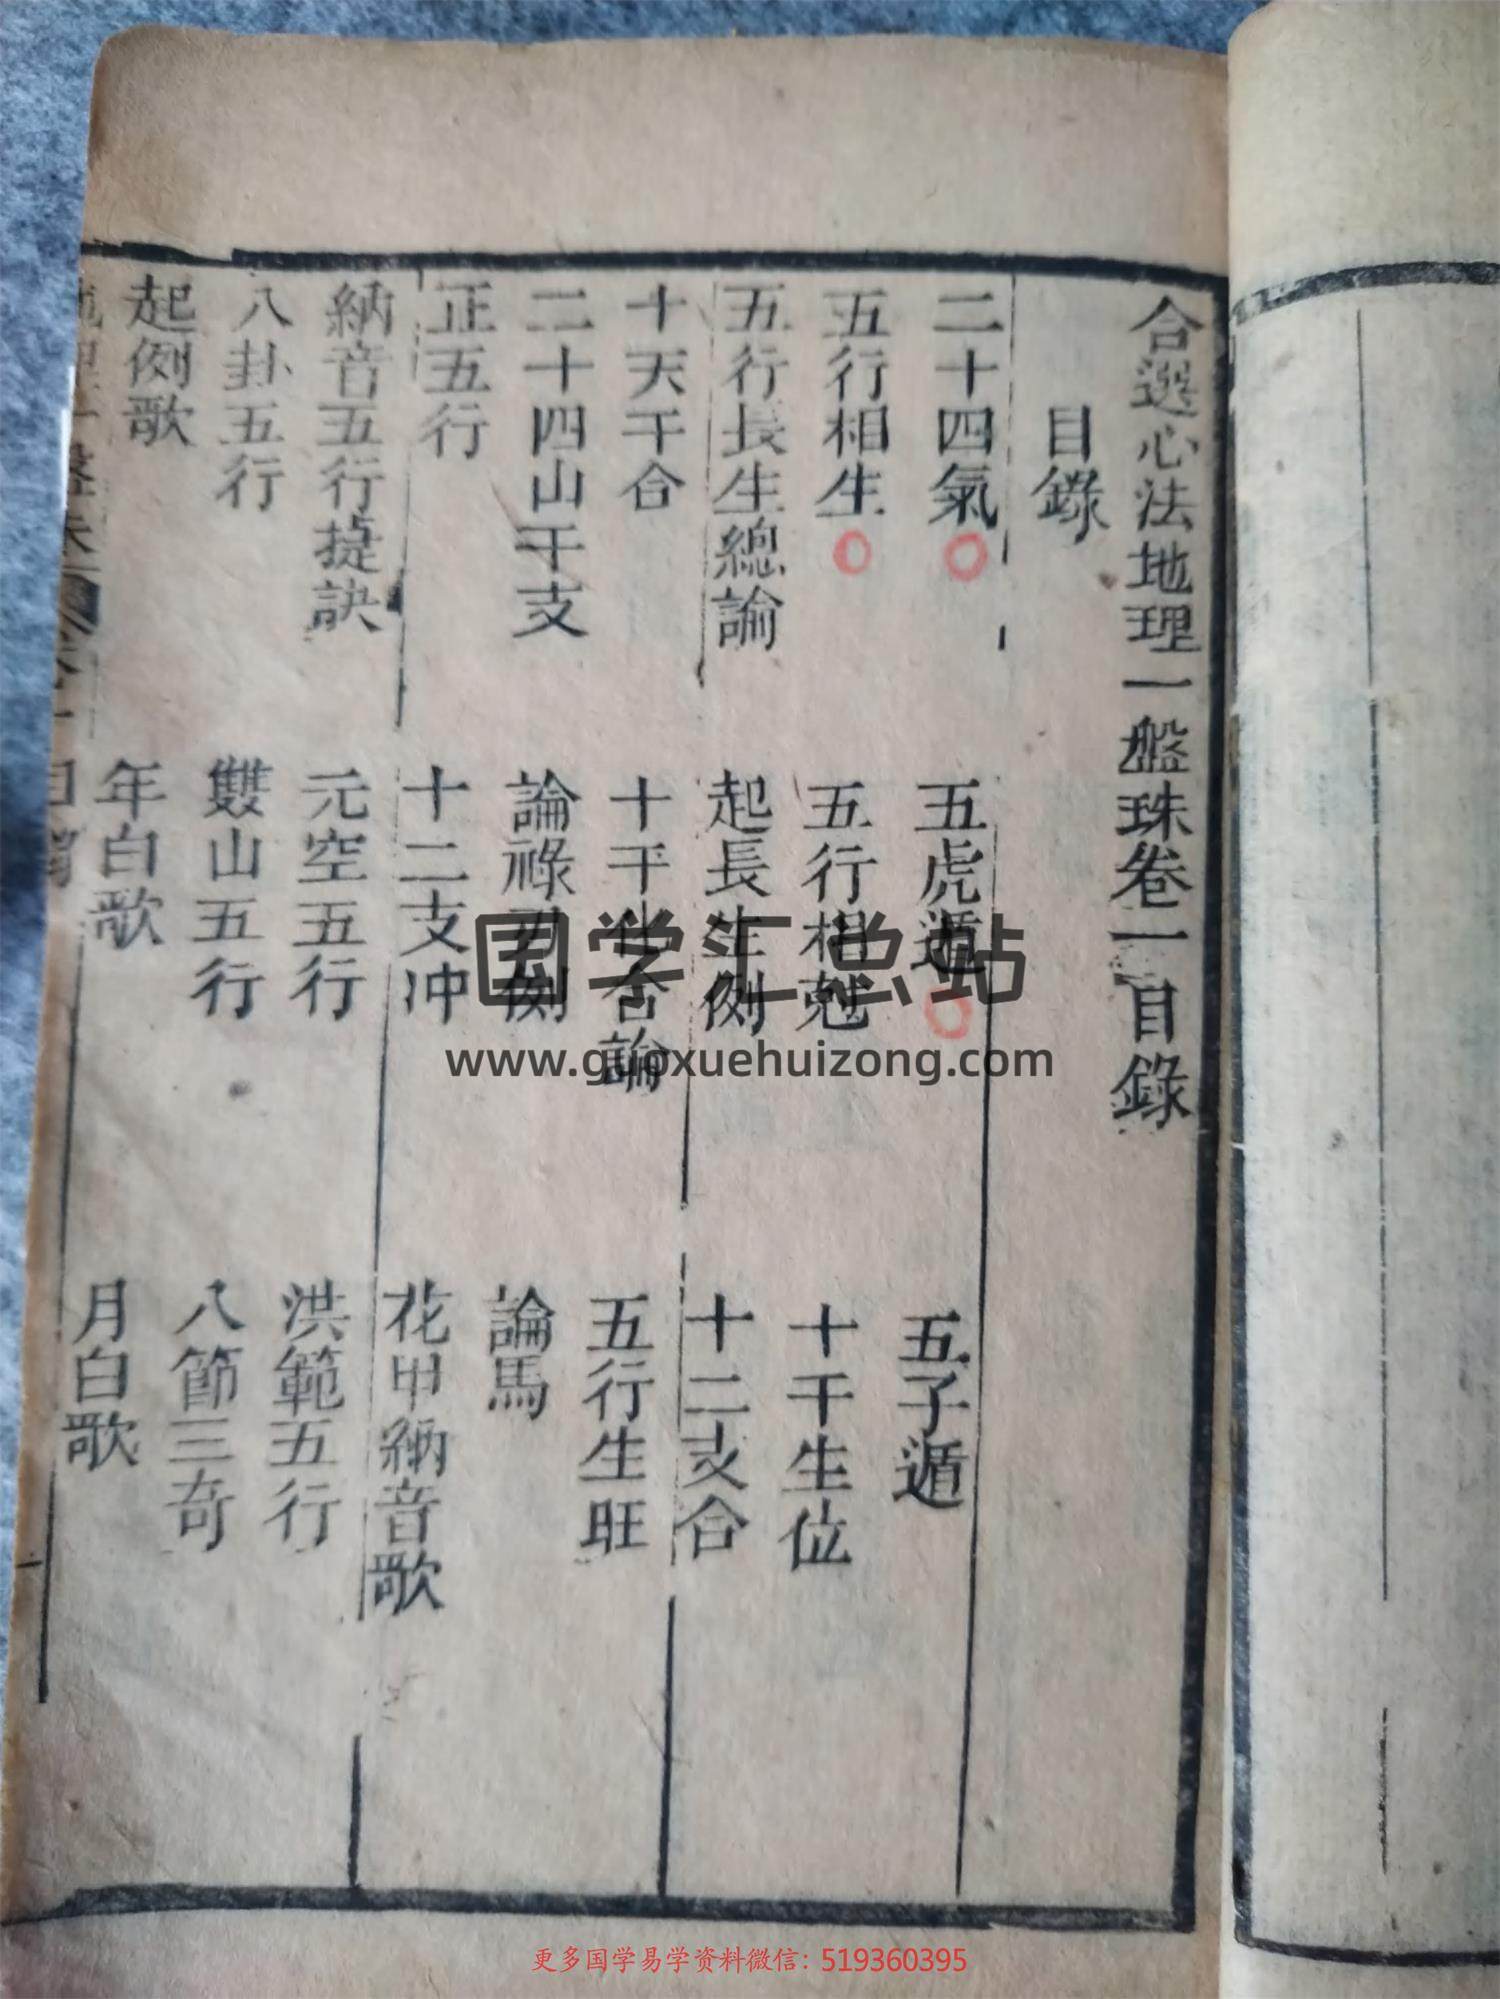 合選心法地理一盤珠卷一目錄
目錄
二十四氣 五虎遁 五子遁
五行相生 五行相剋 十干生位
五行長生總論 起長生例 十二支合
十天干合 十干化合論 五行生旺
二十四山干支 論祿刃例 論馬
正五行 十二支冲 花甲納音歌
納音五行捷訣 元空五行 洪範五行
八卦五行 雙山五行 八節三奇
起例歌 年白歌 月白歌
国学汇总站
www.guoxuehuizong.com
更多国学易学资料微信：519360395